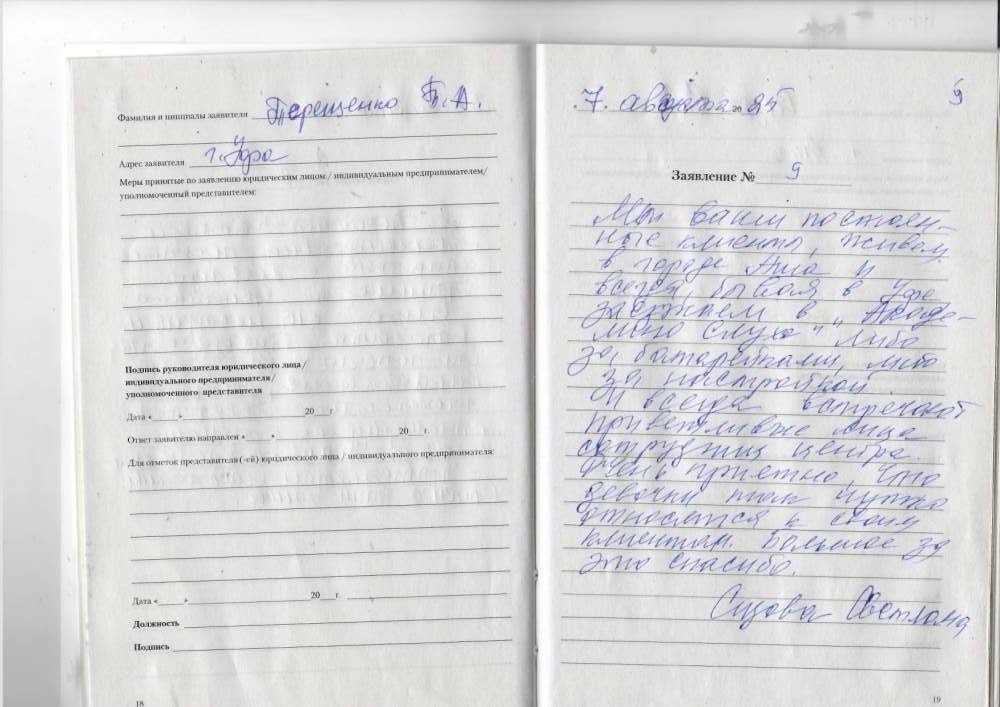 Фамилия и инициалы заявителя Терещенко Б. А.
Адрес заявителя г. Уфа
Меры принятые по заявлению юридическим лицом / индивидуальным предпринимателем/
уполномоченный представителем:
Подпись руководителя юридического лица /
индивидуального предпринимателя /
уполномоченного представителя
Дата «______»______________20___г.
Ответ заявителю направлен «______»______________20___г.
Для отметок представителя (-ей) юридического лица / индивидуального предпринимателя:
Дата «______»______________20___г.
Должность
Подпись
18
9
7. августа 20 25
Заявление № 9
Мы ваши постоян-
ные клиенты, живем
в городе Аша и
всегда, бывая в Уфе
заезжаем в „Акаде-
мию слуха" либо
за батарейками, либо
за настройкой
И всегда встречают
приветливые лица
сотрудниц центра.
Очень приятно, что
девочки так чутко
относятся к своим
клиентам. Большое за
это спасибо.
Сизова Светлана
19